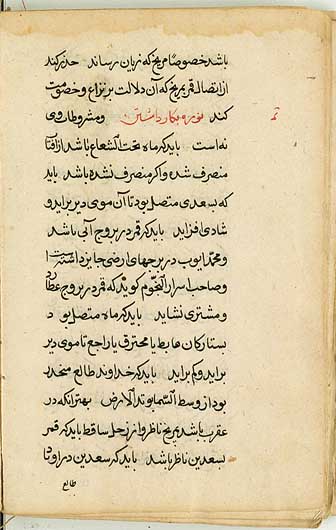 باشد خصوصا مریخ که زیان رساند حذر کند
از اتصال قمر بمریخ که آن دلالت بر نزاع و خصومت
کند نوره بکار داشتن ومشروطا روی
نه است باید که ماه تحت الشعاع باشد از آفتا
منصرف شده و اکر منصرف نشده باشد باید
که بسعدی متصل بود تا آن موی دیر براید و
شادی افزاید باید که قمر در بروج آبی باشد
و محمد ایوب در برجهای ارضی جایز داشته است
وصاحب اسرار النجوم کوید که قمر در بروج عطارد
و مشتری نشاید باید که ماه متصل بود
بستارکان هابط یا محترق یا راجع تا موی دیر
براید و کم براید باید که خداوند طالع منحدر
بود از وسط السما بوتد الارض بهتر انکه در
عقرب باشد بمریخ ناظر و از زحل ساقط باید که قمر
بسعدین ناظر باشد باید که سعدین در اوتاد
طالع